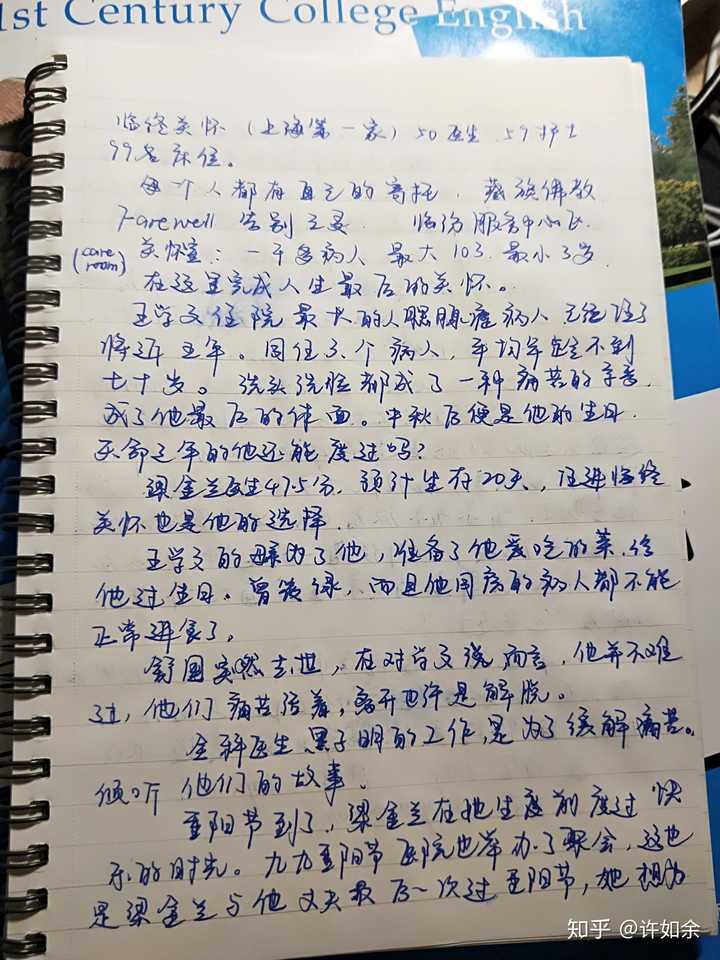 1st Century College English
临终关怀（上海第一家）50医生 59护士
99名床位。
每个人都有自己的寄托 藏族佛教
Farewell 告别之墨 临汾服务中心区
(care room) 关怀室：一千多病人 最大103 最小3岁
在这里完成人生最后的关怀。
王学文住院最大的人腮腺癌病人 已经住了
将近五年。同住3个病人，平均年龄不到
七十岁。洗头洗脸都成了一种痛苦的享受，
成了他最后的体面。中秋后便是他的生日，
本命之年的他还能度过吗？
梁金兰医生47.5分，预计生存20天，住进临终
关怀也是他的选择，
王学文的母亲为了他，准备了他爱吃的菜，给
他过生日。曾发绿，而且他同房的病人都不能
正常进食了，
舒国突然去世，在对学文说而言，他并不难
过，他们痛苦活着，离开也许是解脱。
全科医生 黑子明的工作，是为了缓解痛苦。
倾听 他们的故事。
重阳节到了，梁金兰在她生度前度过快
乐的时光。九九重阳节医院也举办了联会，这也
是梁金兰与他丈夫最后一次过重阳节，她想为
知乎 @许如余